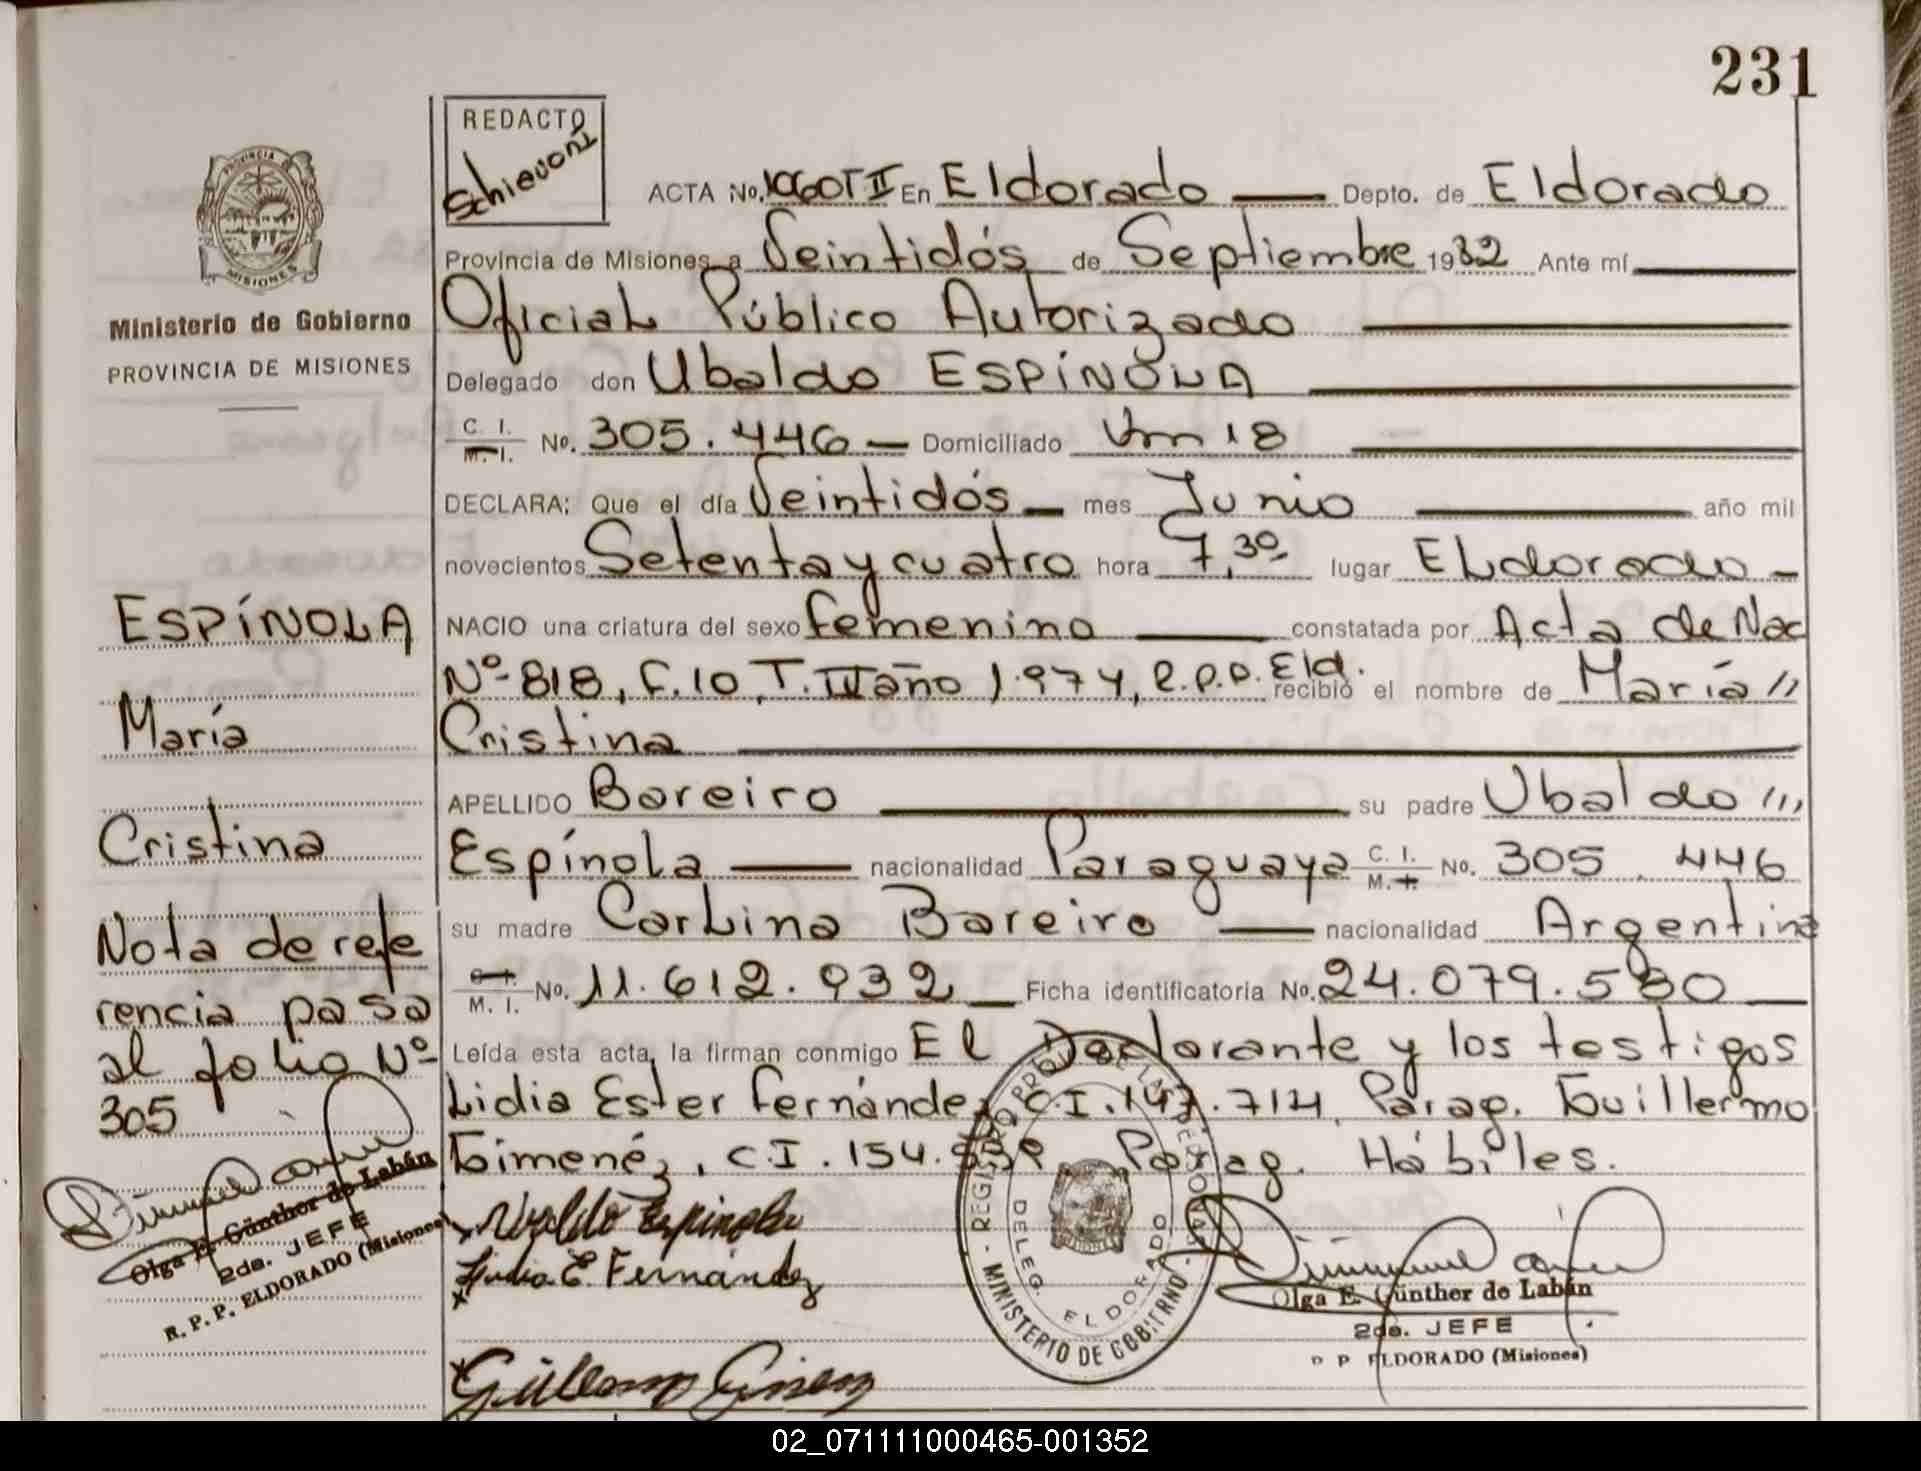 231
REDACTO
Schievoni
PROVINCIA
MISIONES
Ministerio de Gobierno
PROVINCIA DE MISIONES
ACTA No. 1060 T II En Eldorado Depto. de Eldorado
Provincia de Misiones, a Veintidós de Septiembre 1982 Ante mí
Oficial Público Autorizado
Delegado don Ubaldo ESPÍNOLA
C. I. M. I. No. 305.446 Domiciliado Km 18
DECLARA: Que el día Veintidós mes Junio año mil
novecientos Setenta y cuatro hora 7,30 lugar Eldorado
NACIO una criatura del sexo femenino constatada por Acta de Nac
Nº 818, F.10, T. IV año 1.974, R.P.P. Eld. recibió el nombre de María //
Cristina
APELLIDO Bareiro su padre Ubaldo ///
Espínola nacionalidad Paraguaya C. I. M. I. No. 305.446
su madre Carlina Bareiro nacionalidad Argentina
C. I. M. I. No. 11.612.932 Ficha identificatoria No. 24.079.580
Leída esta acta, la firman conmigo El Declarante y los testigos
Lidia Ester Fernández C.I. 147.714 Parag. Guillermo
Gimenéz, C.I. 154. Parag. Hábiles.
ESPÍNOLA
María
Cristina
Nota de refe
rencia pasa
al folio Nº
305
Olga E. Günther de Labán
2da. JEFE
R. P. P. ELDORADO (Misiones)
Ubaldo Espinola
Lidia E. Fernández
Guillermo Gimenez
REGISTRO PROV. DE LAS PERSONAS
DELEG. ELDORADO
MINISTERIO DE GOBIERNO
Olga E. Günther de Labán
2da. JEFE
P P ELDORADO (Misiones)
02_071111000465-001352